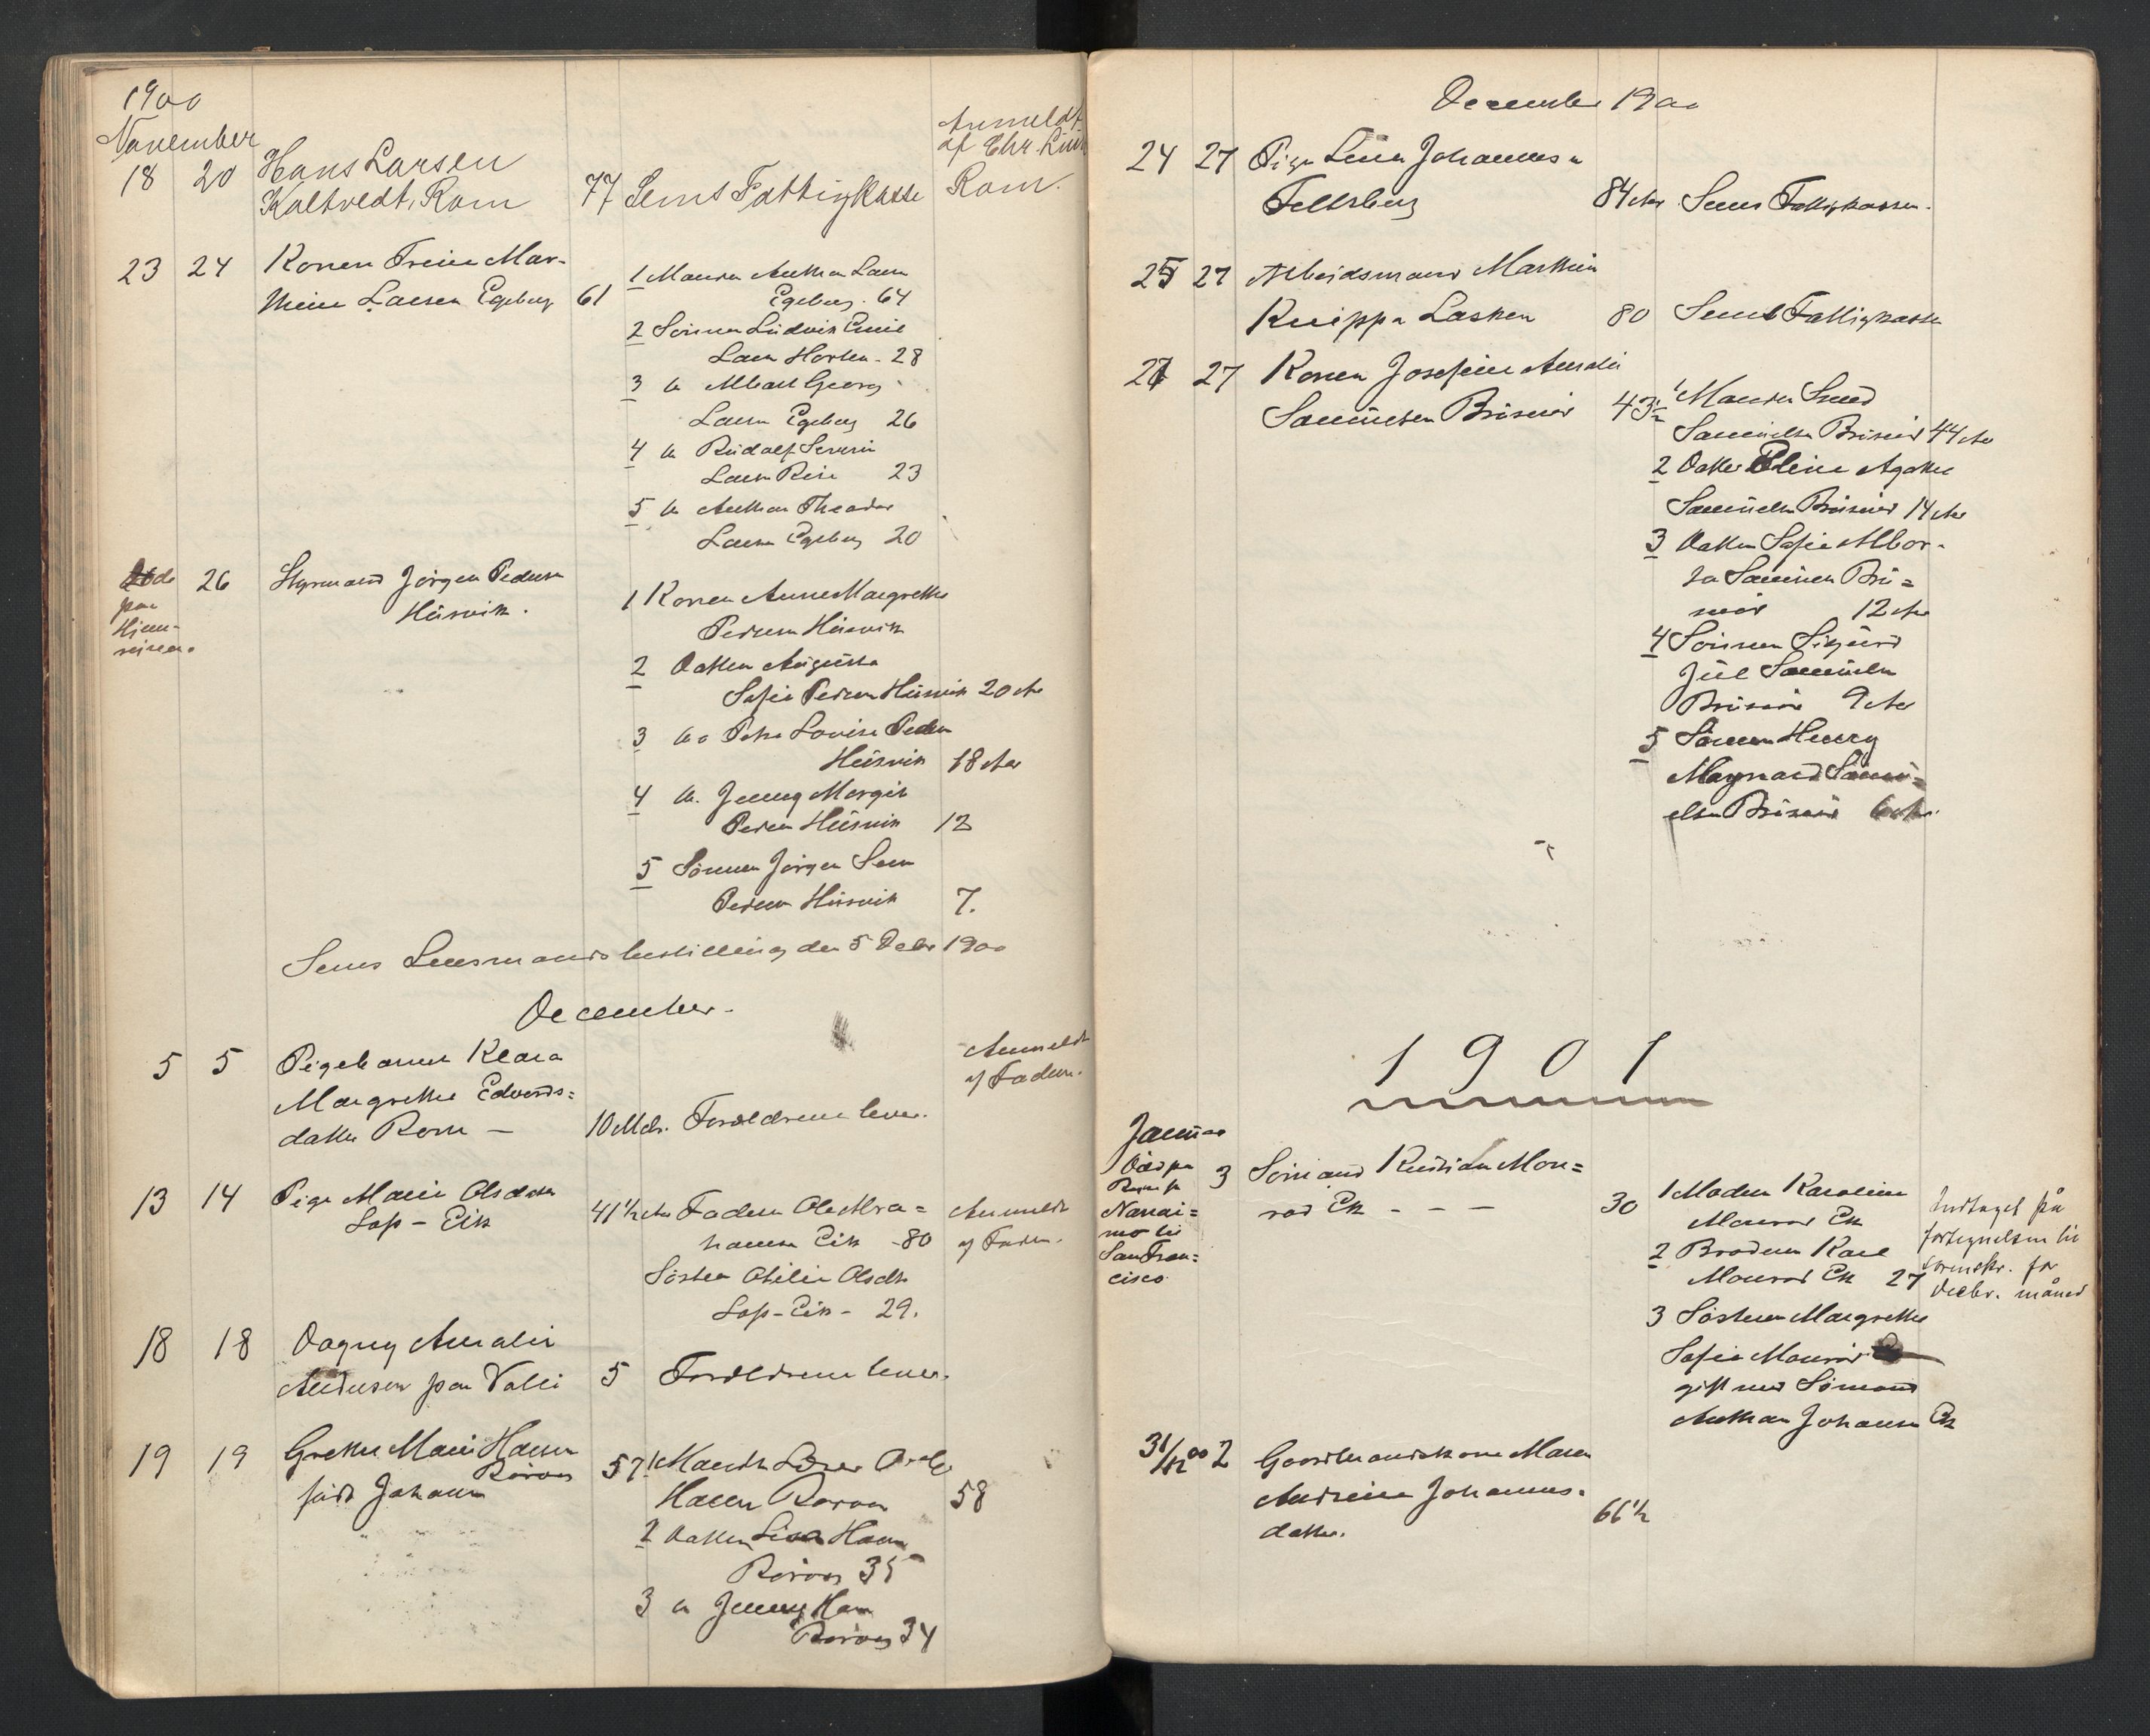 1900
November
Anmeldt
af Chr.
18 20 Hans Larsen
Kaltvedt, Rom 77 Sems Fattigkasse Rom.
23 24 Konen Trine Mar-
thine Larsen Egeberg 61
1 Manden Anthon Larsen
Egeberg. 64
2 Sönnen Ludvik Emil
Larsen Horten. 28
3 do Albart Georg
Larsen Egeberg 26
4 do Rudolf Severin
Larsen Rise 23
5 do Anthon Theodor
Larsen Egeberg 20
paa
Hjem-
reisen.
26 Styrmand Jörgen Pedersen
Husvik.
1 Konen Anne Margrethe
Pedersen Husvik
2 Datter Augusta
Sofie Pedersen Husvik 20 Aar
3 do Petra Lovise Pedersen
Husvik 18 Aar
4 do. Jenny Margit
Pedersen Husvik 12
5 Sönnen Jörgen Sem
Pedersen Husvik 7.
Sems Lensmandsbestilling den 5 Decbr 1900
December.
5 5 Pigebarnet Klara
Margrethe Edvards=
datter Rom — 10 Mdr. Forældrene lever.
Anmeldt
af Faderen.
13 14 Pige Marie Olsdatter
Sop - Eik
41½ Aar Faderen Ole Abra=
hamsen Eik - 80
Söster Otilie Olsdtr
Sop - Eik - 29.
Anmeldt
af Faderen.
18 18 Dagny Amalie
Andersen paa Valle 5 Forældrene lever.
19 19 Grethe Marie Hansen
Röraas
född Johansen 57
1 Manden
Hansen Röraas 58
2 Datter Lisa Hansen
Röraas 35
3 do Jenny Hansen
Röraas 34
December 1900
24 27 Pige Lina Johannesen
84 Aar Sems Fattigkassen.
25 27 Arbeidsmand Mathias
Knippa Lasken 80 Sems Fattigkasse
27 27 Konen Josefine Amalie
Samuelsen Brismöi 43½
1 Manden
Samuelsen Brismöi 44 Aar
2 Datter Eline Agathe
Samuelsen Brismöi 14 Aar
3 Datter Sofie Albor-
ta Samuelsen Bri=
möi 12 Aar
4 Sönnen Sigurd
Juel Samuelsen
Brismöi 9 Aar
5 Sönnen Henry
Maynard Samu=
elsen Brismöi 6 Aar.
1901
Januar
Död paa
Reise fr
Nanai=
mo til
San Fran=
cisco
3 Sömand Kristian Mon=
rad Ek - - — 30
1 Moderen Karoline
Monrad Ek
2 Broderen Karl
Monrad Ek 27
3 Sösteren Margrethe
Sofie Monrad
gift med Sömand
Anthon Johansen Ek
Indtaget på
fortegnelsen til
sorenskr. for
decbr. måned
31/12 00 2 Gaardmandskone Maren
Andrine Johannes-
datter. 66½